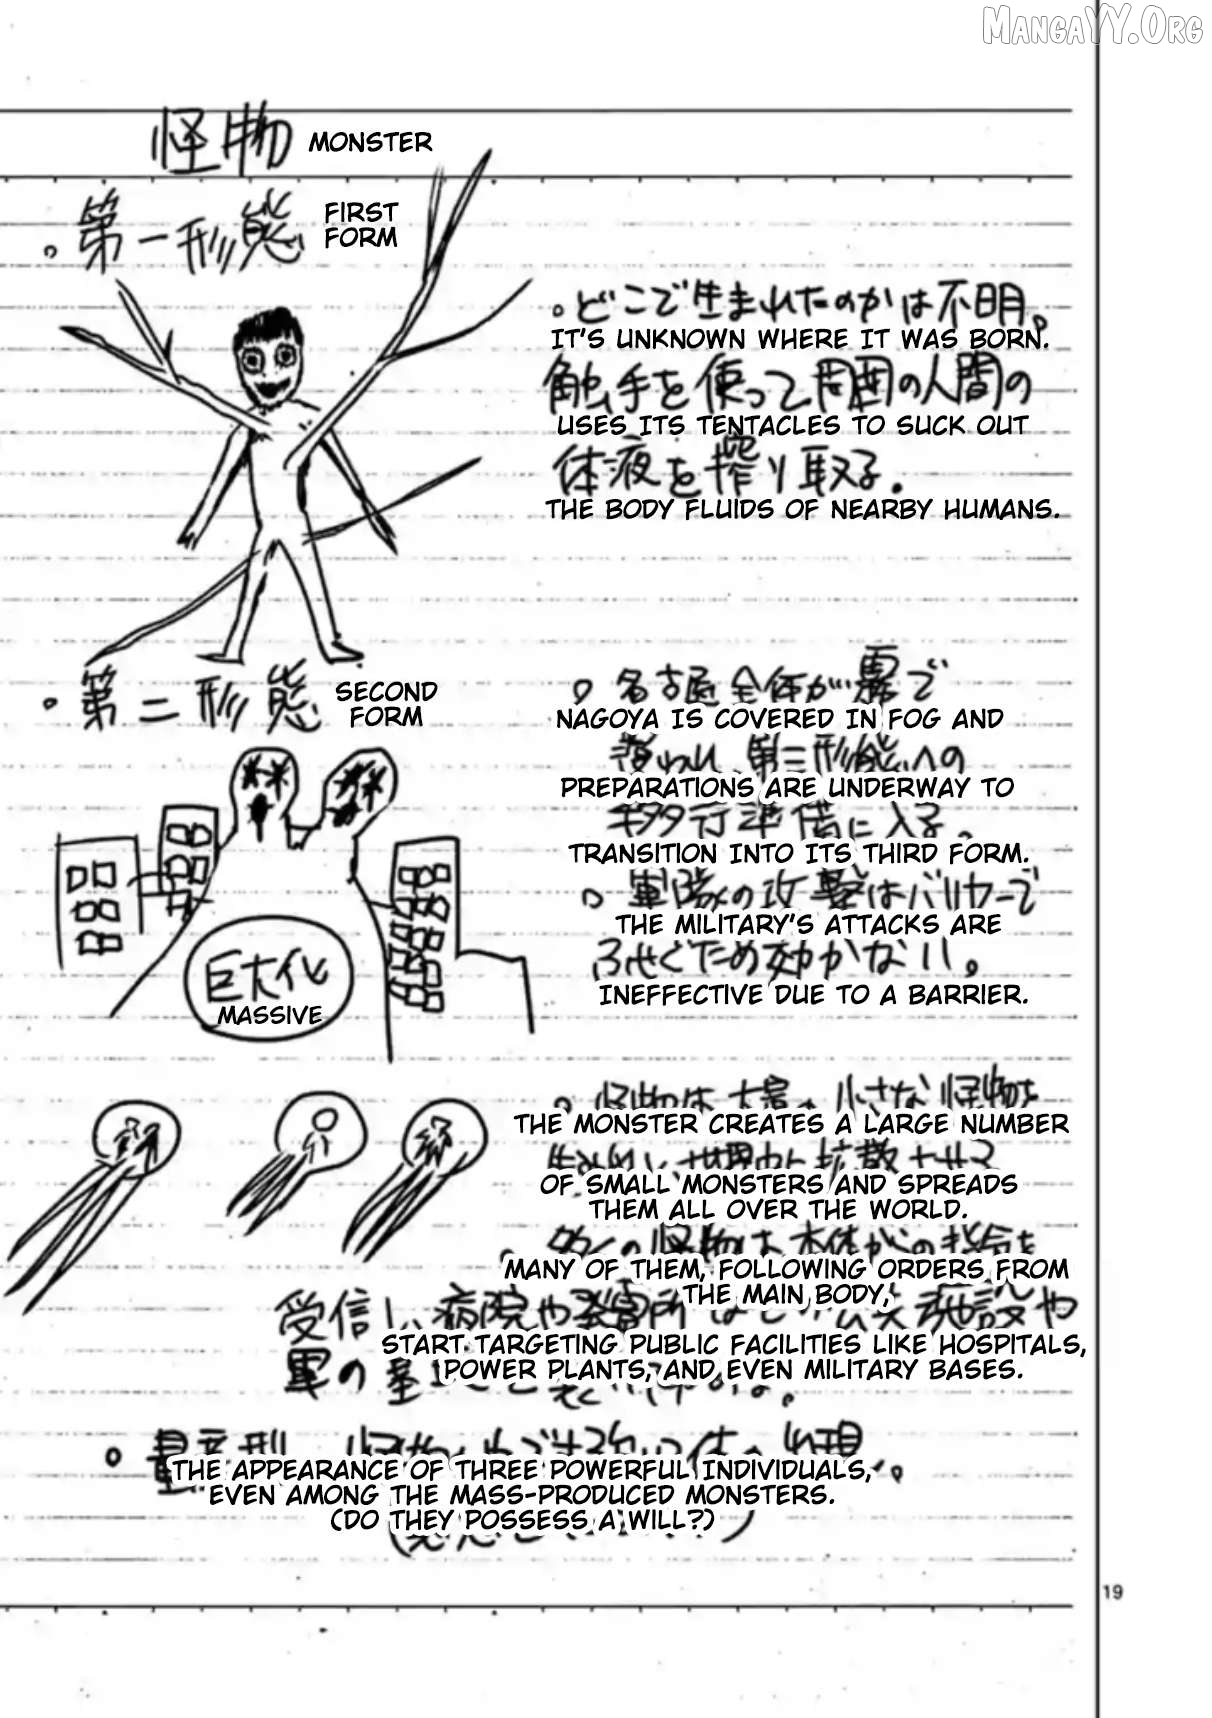 MANGAYY.ORG
怪物 MONSTER
。第一形態 FIRST
FORM
。どこで生まれたのかは不明。
IT'S UNKNOWN WHERE IT WAS BORN.
触手を使って周囲の人間の
USES ITS TENTACLES TO SUCK OUT
体液を搾り取る。
THE BODY FLUIDS OF NEARBY HUMANS.
。第二形態 SECOND
FORM
。名古屋全体が霧で
NAGOYA IS COVERED IN FOG AND
覆われ、第三形態への
PREPARATIONS ARE UNDERWAY TO
移行準備に入る。
TRANSITION INTO ITS THIRD FORM.
。軍隊の攻撃はバリヤーで
THE MILITARY'S ATTACKS ARE
ふせぐため効かない。
INEFFECTIVE DUE TO A BARRIER.
巨大化
MASSIVE
。怪物は大量の小さな怪物を
THE MONSTER CREATES A LARGE NUMBER
OF SMALL MONSTERS AND SPREADS
THEM ALL OVER THE WORLD.
。多くの怪物は本体からの指令を
MANY OF THEM, FOLLOWING ORDERS FROM
THE MAIN BODY,
受信し、病院や発電所 施設や
START TARGETING PUBLIC FACILITIES LIKE HOSPITALS,
軍の基
POWER PLANTS, AND EVEN MILITARY BASES.
THE APPEARANCE OF THREE POWERFUL INDIVIDUALS,
EVEN AMONG THE MASS-PRODUCED MONSTERS.
(DO THEY POSSESS A WILL?)
19